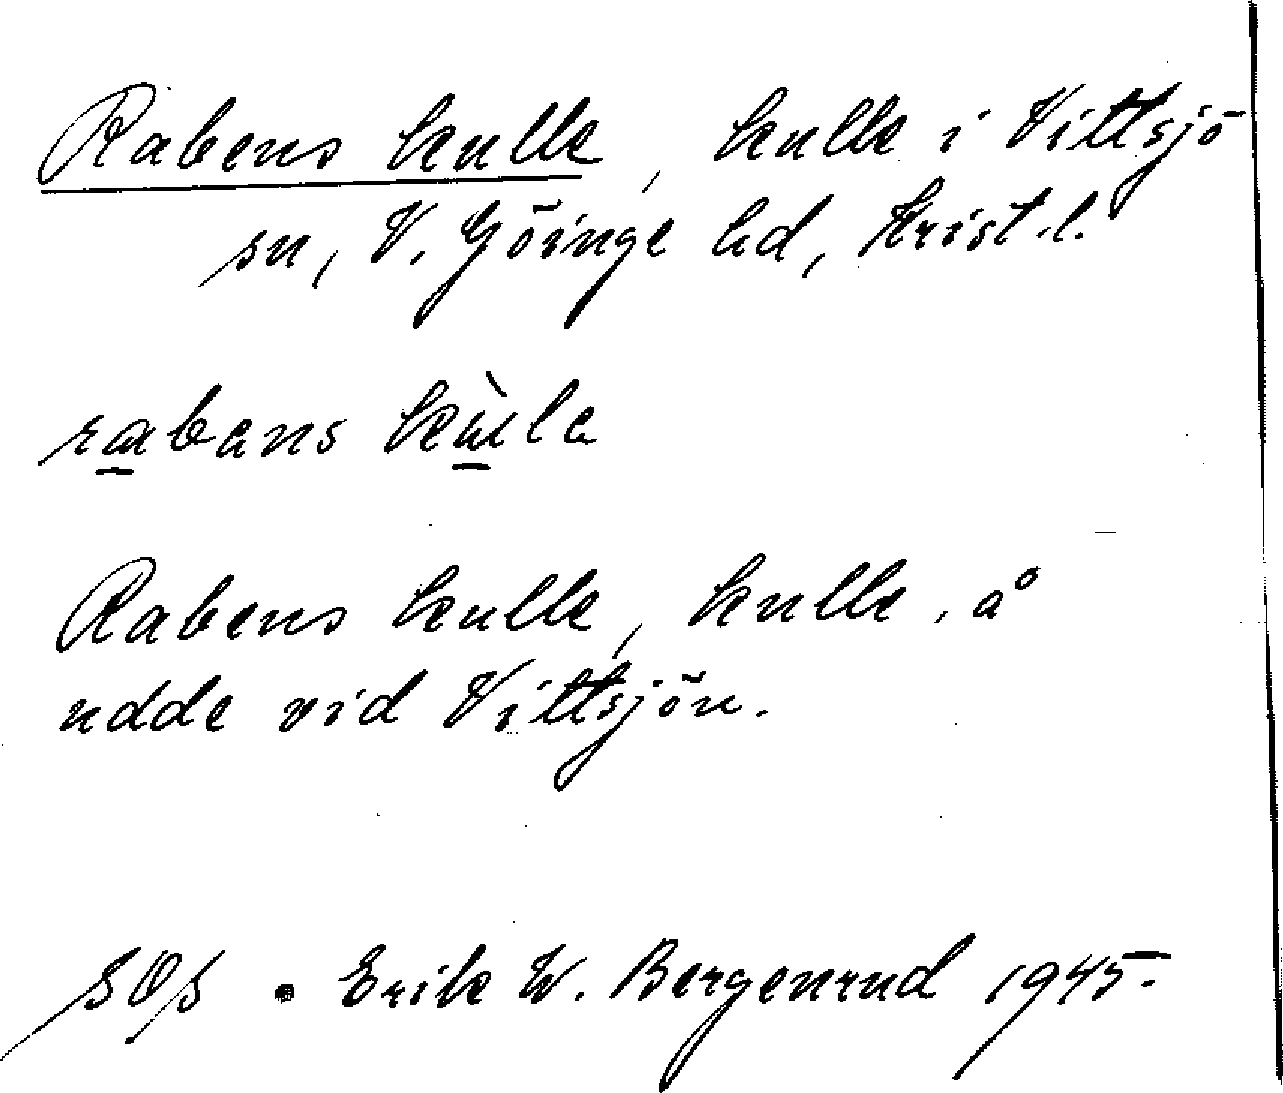 Rabens kulle, kulle i Vittsjö
sn, V. Göinge hd, Krist. l.
rabans kùla
Rabens kulle, kulle, å
udde vid Vittsjön.
SOS. Erik W. Bergenrud 1945.